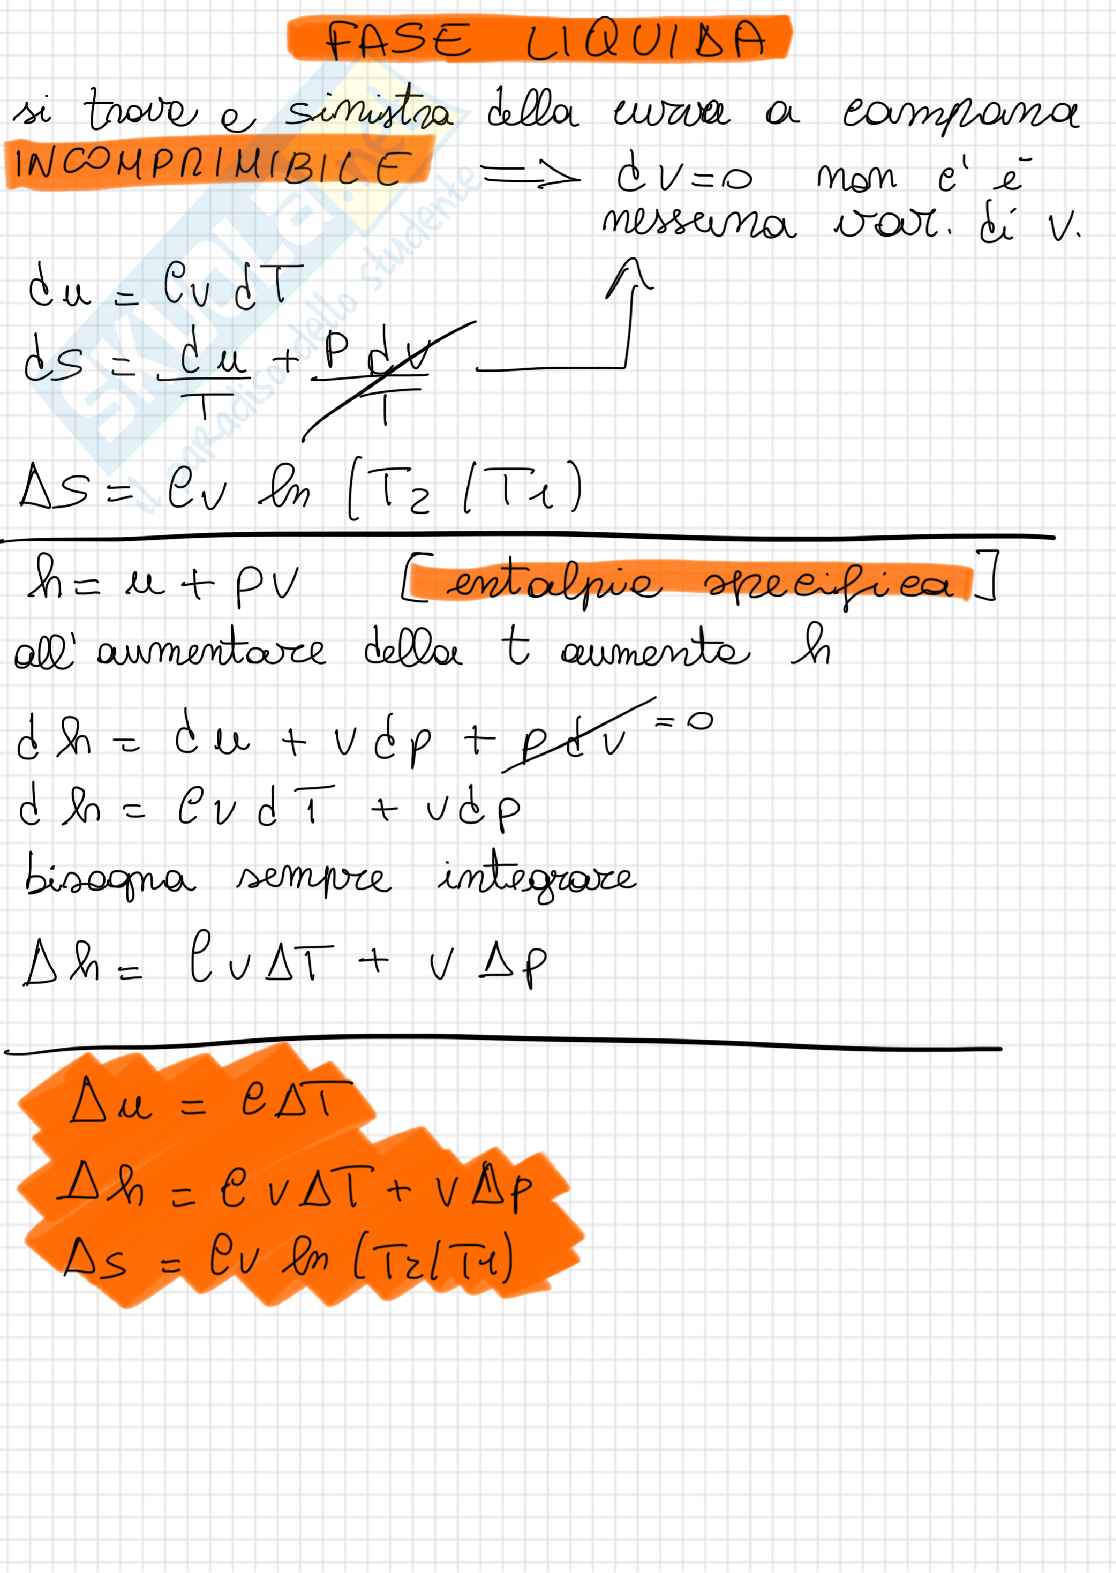 FASE LIQUIDA
si trova a sinistra della curva a campana
INCOMPRIMIBILE ⟹ dv=0 non c'è
nessuna var. di v.
du = cv dT
ds = du/T + p dv/T
Δs = cv ln (T2/T1)
h = u + pv [entalpia specifica]
all'aumentare della t aumenta h
dh = du + vdp + pdv = 0
dh = cv dT + vdp
bisogna sempre integrare
Δh = cvΔT + vΔp
Δu = cΔT
Δh = cvΔT + vΔp
Δs = cv ln (T2/T1)
SKUOLA.net
il paradiso dello studente